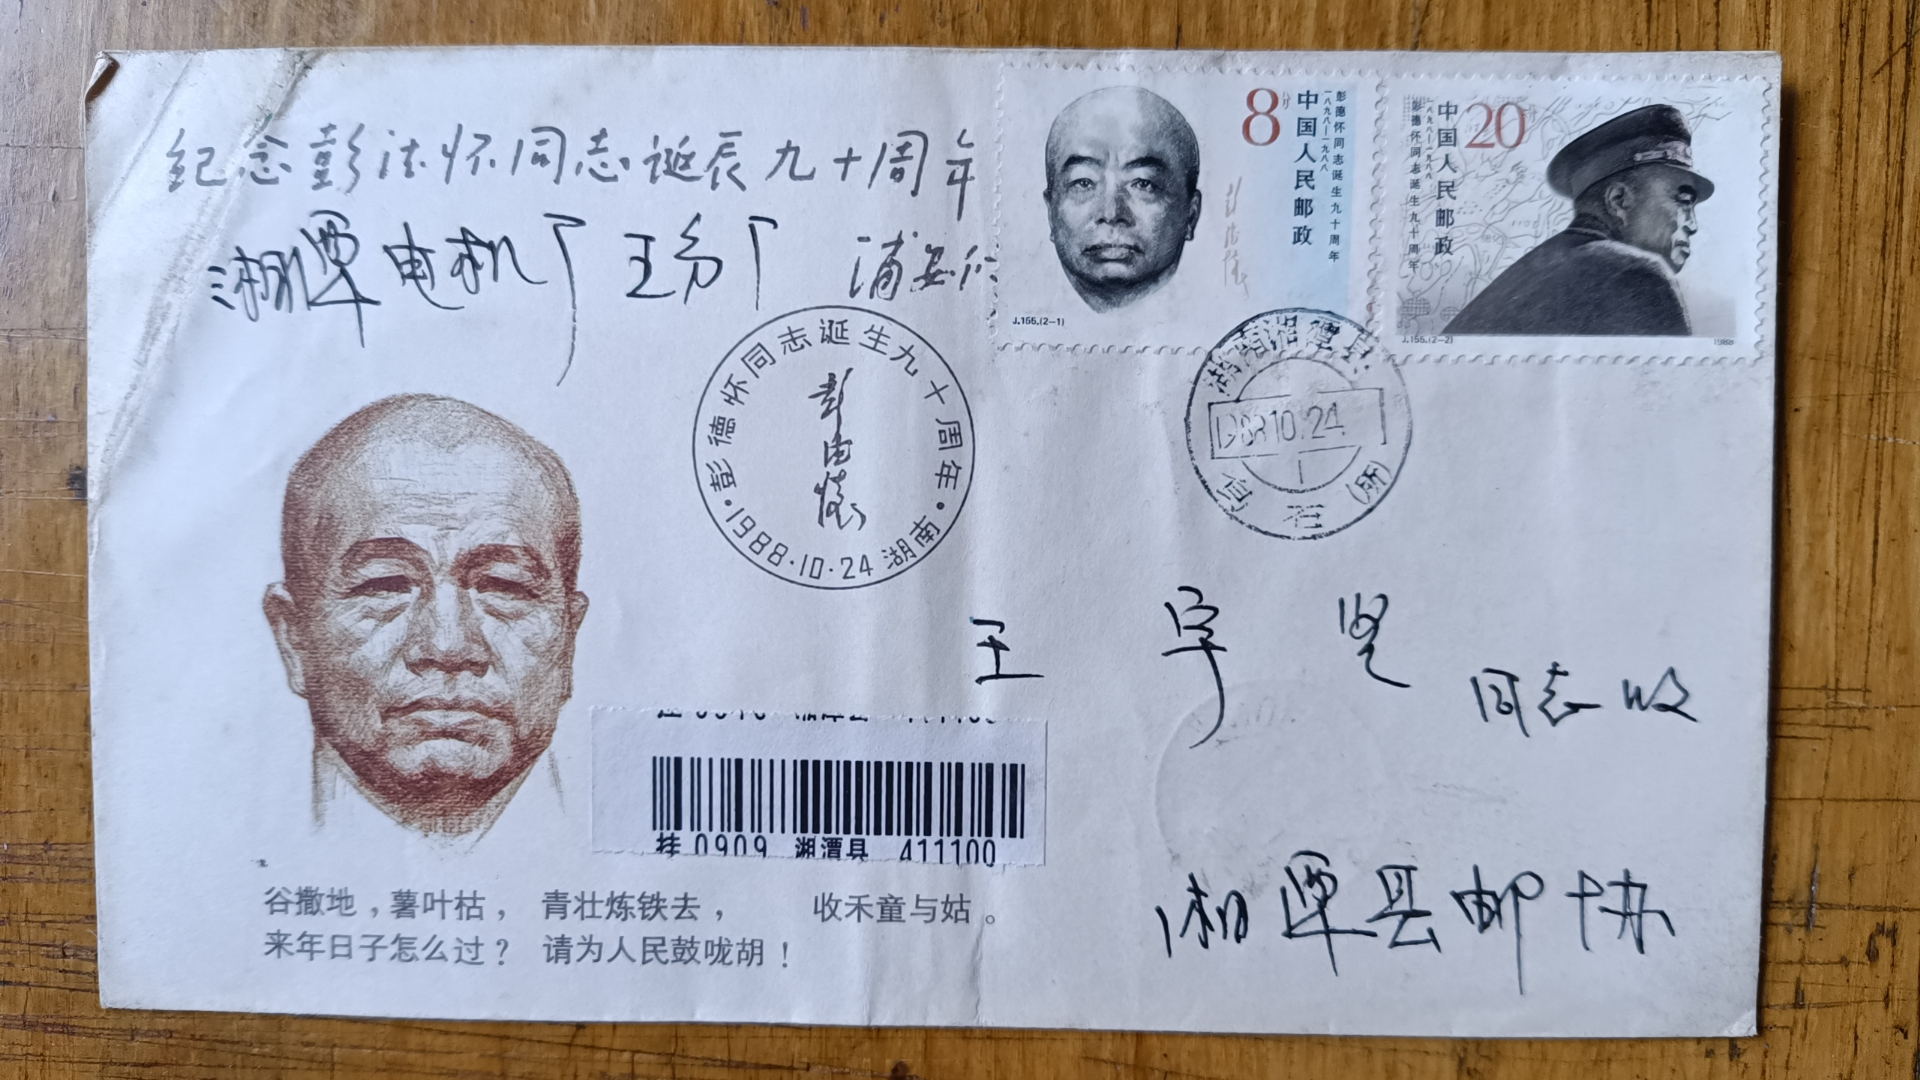 纪念彭德怀同志诞辰九十周年
湘潭电机厂王乡厂 浦
8分
中国人民邮政
彭德怀同志诞生九十周年
一八九八—一九八八
彭德怀
J.155.(2-1)
20
中国人民邮政
一八九八—一九八八
彭德怀同志诞生九十周年
J.155.(2-2)
1988
彭德怀同志诞生九十周年
彭德怀
·1988·10·24 湖南·
湖南湘潭县
1988.10.24
1
乌石(所)
王宇贤
同志收
挂 0909 湘潭县 411100
湘潭县邮协
谷撒地，薯叶枯， 青壮炼铁去， 收禾童与姑。
来年日子怎么过？ 请为人民鼓咙胡！